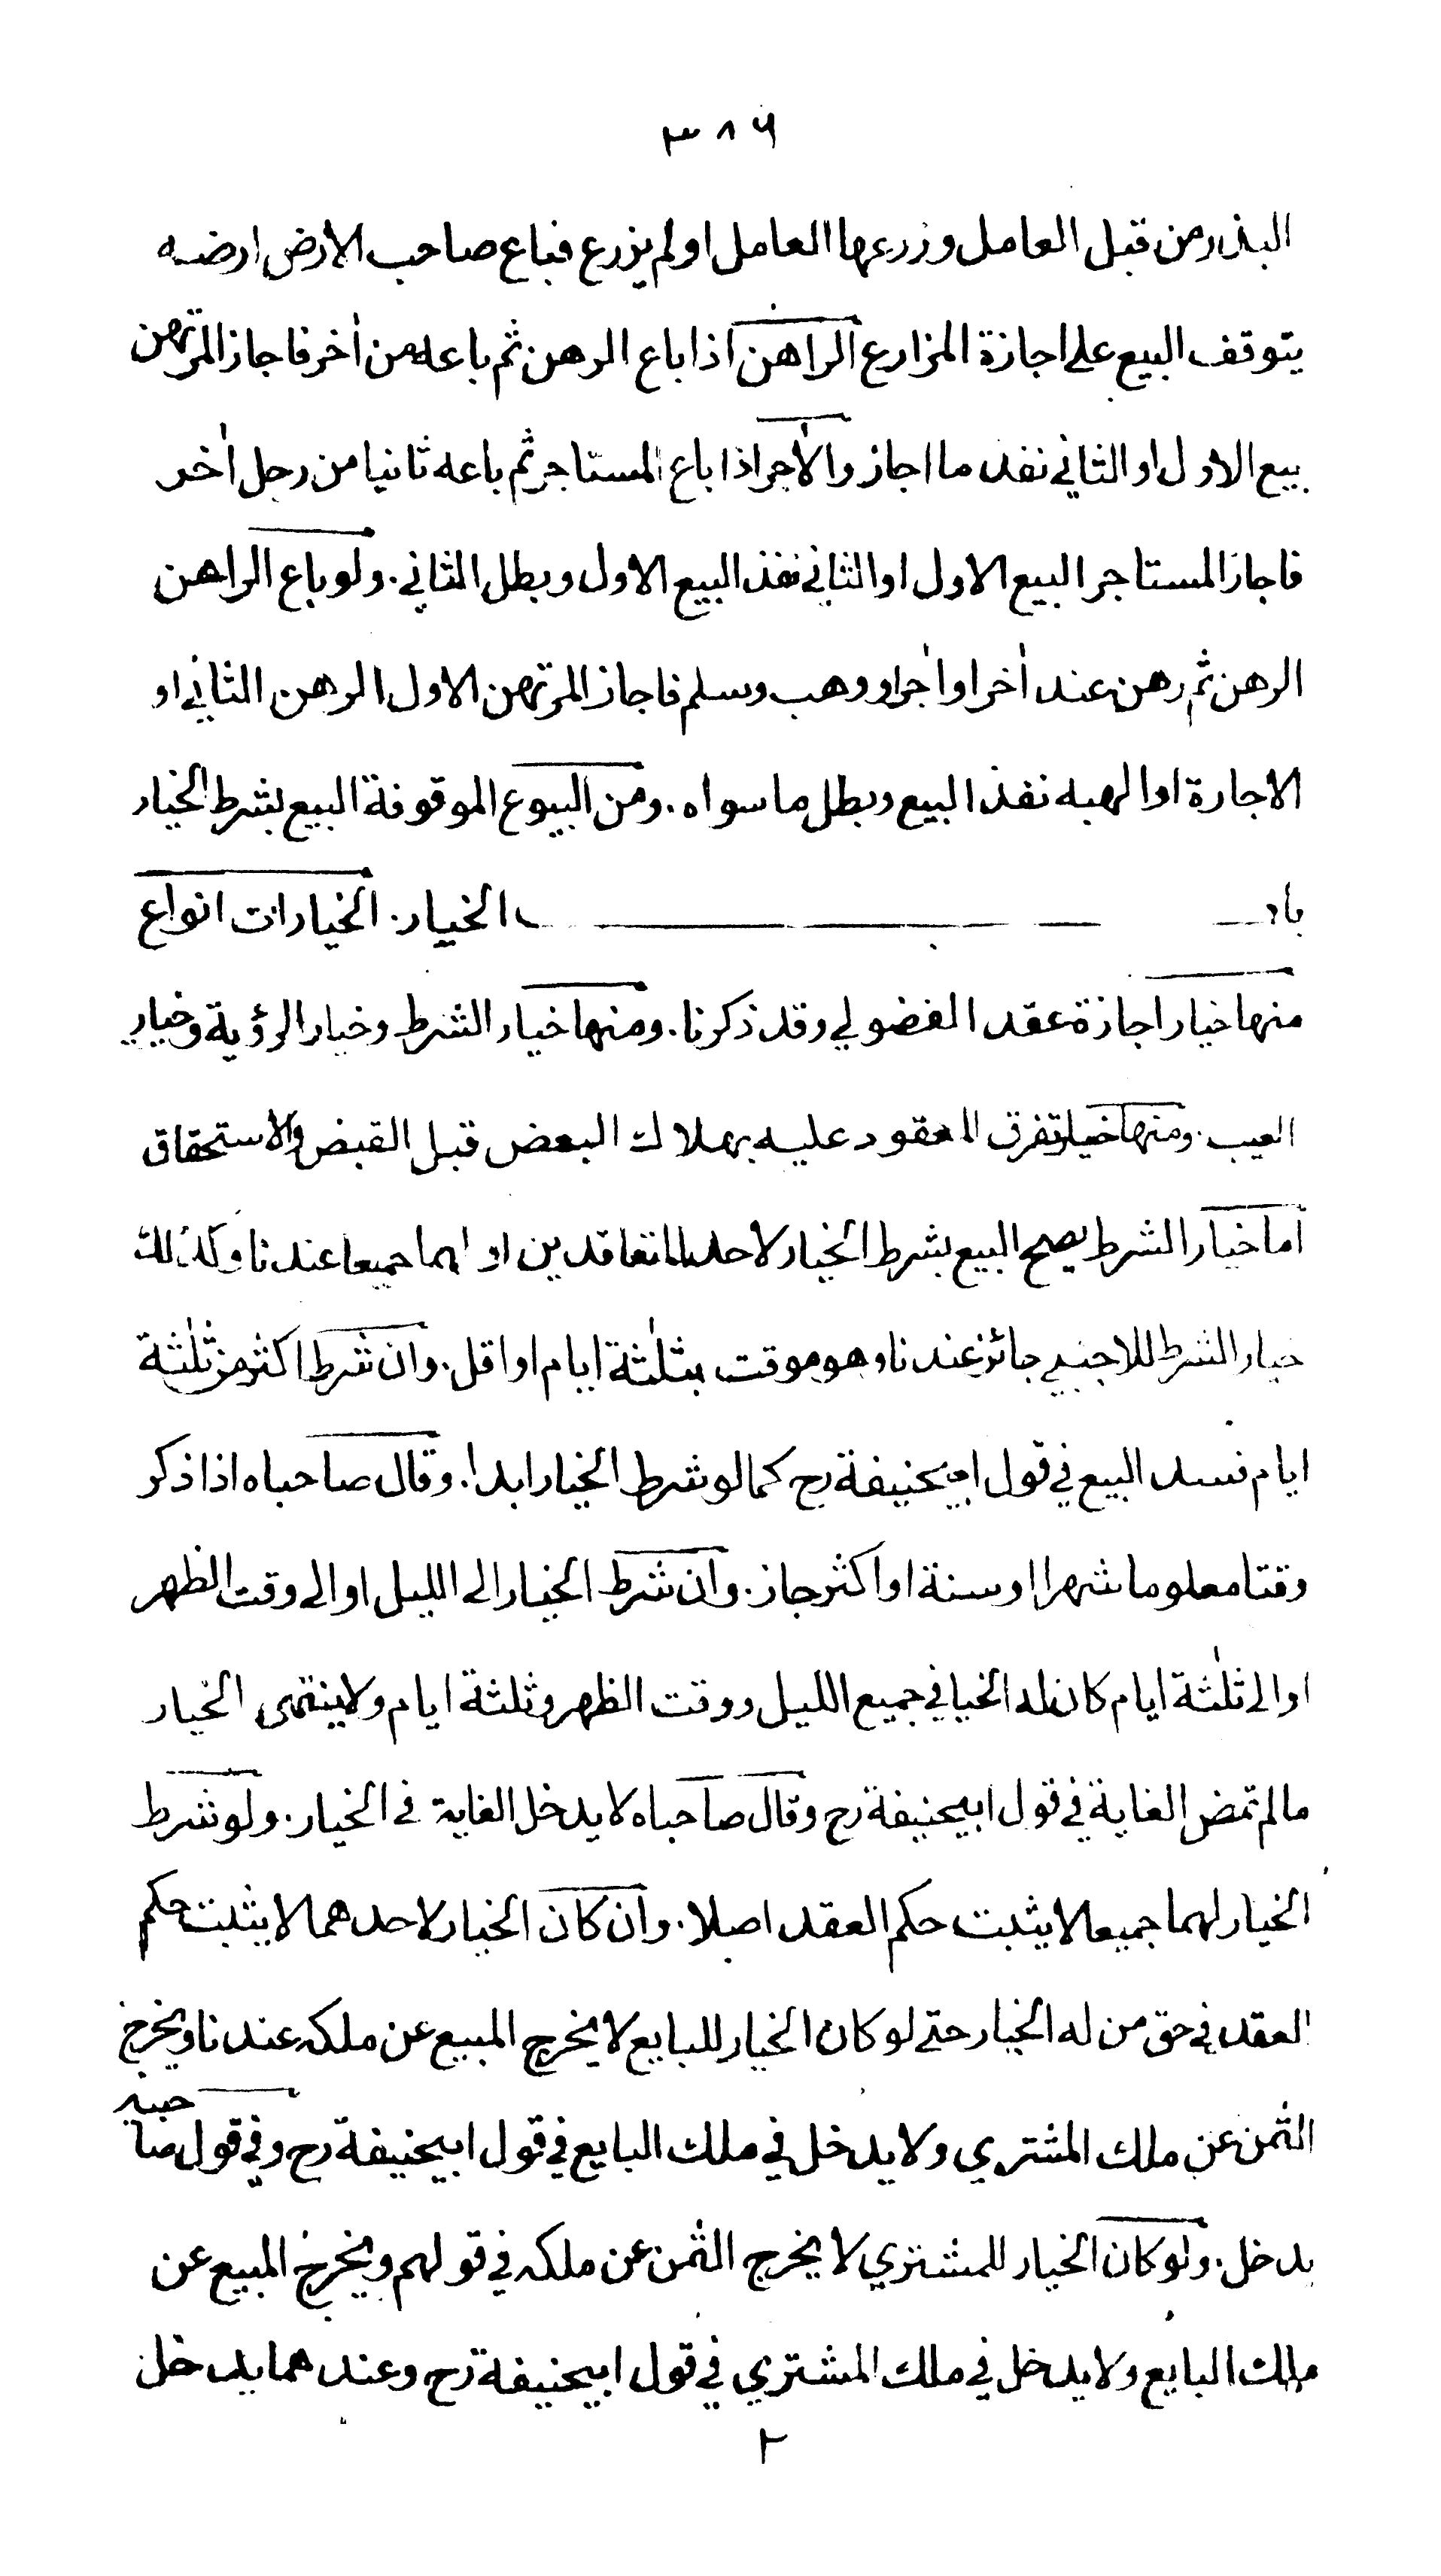 ٣٨٦
البذر من قبل العامل وزرعها العامل او لم يزرع فباع صاحب الارض ارضه
يتوقف البيع على اجازة المزارع الراهن اذا باع الرهن ثم باعه من اٰخر فاجاز المرتهن
بيع الاول او الثاني نفذ ما اجاز والاٰجر اذا باع المستاجر ثم باعه ثانيا من رجل اٰخر
فاجاز المستاجر البيع الاول او الثاني نفذ البيع الاول وبطل الثاني. ولو باع الراهن
الرهن ثم رهن عند اٰخر او اٰجر او وهب وسلم فاجاز المرتهن الاول الرهن الثاني او
الاجارة او الهبه نفذ البيع وبطل ما سواه. ومن البيوع الموقوفة البيع بشرط الخيار
باب الخيار. الخيارات انواع
منها خيار اجازة عقد الفضولي وقد ذكرنا. ومنها خيار الشرط وخيار الرؤية وخيار
العيب. ومنها خيار تفرق المعقود عليه بهلاك البعض قبل القبض والاستحقاق
اما خيار الشرط يصح البيع بشرط الخيار لاحد المتعاقدين او لهما جميعا عندنا وكذلك
خيار الشرط للاجنبي جائز عندنا وهو موقت بثلٰثة ايام او اقل. وان شرط اكثر من ثلٰثة
ايام فسد البيع في قول ابيحنيفة رح كما لو شرط الخيار ابدا. وقال صاحباه اذا ذكر
وقتا معلوما شهرا او سنة او اكثر جاز. وان شرط الخيار الى الليل او الى وقت الظهر
او الى ثلٰثة ايام كان له الخيا في جميع الليل ووقت الظهر وثلثة ايام ولا ينتهى الخيار
ما لم تمض الغاية في قول ابيحنيفة رح وقال صاحباه لا يدخل الغاية في الخيار. ولو شرط
الخيار لهما جميعا لا يثبت حكم العقد اصلا. وان كان الخيار لاحدهما لا يثبت حكم
العقد في حق من له الخيار حتى لو كان الخيار للبايع لا يخرج المبيع عن ملكه عندنا ويخرج
الثمن عن ملك المشتري ولا يدخل في ملك البايع في قول ابيحنيفة رح وفي قول صاحبيه
يدخل. ولو كان الخيار للمشتري لا يخرج الثمن عن ملكه في قولهم ويخرج المبيع عن
ملك البايع ولا يدخل في ملك المشتري في قول ابيحنيفة رح وعندهما يدخل
٢